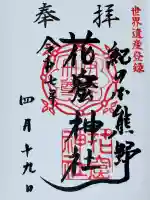 世界遺産登録
奉拝
熊野
花窟神社
令和
四月十九日